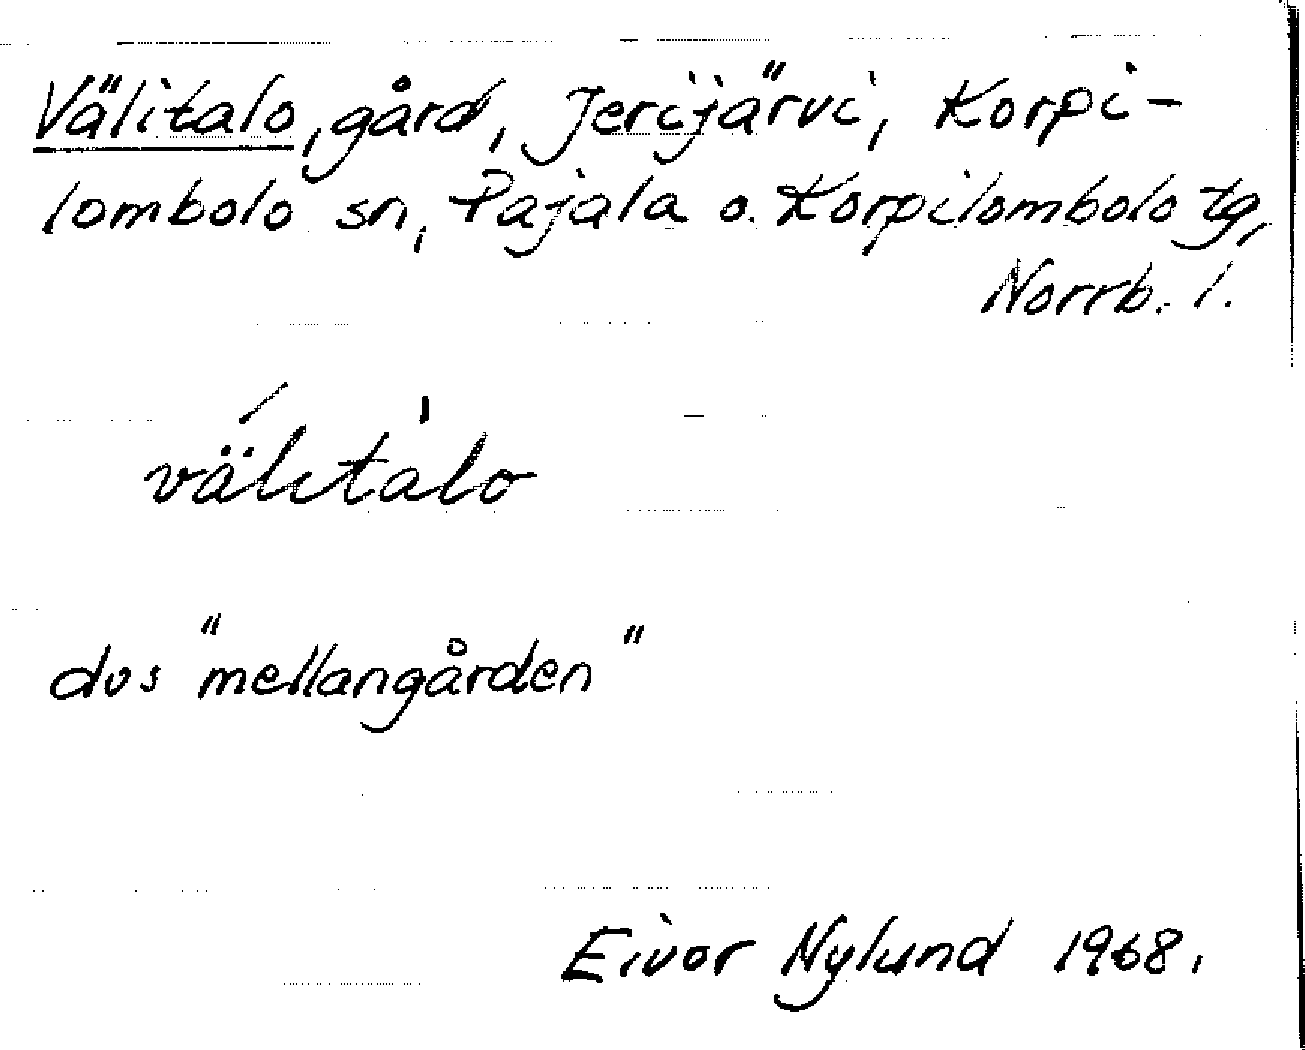 Välitalo, gård, Jerijärvi, Korpi-
lombolo sn, Pajala o. Korpilombolo tg,
Norrb. l.
välıtalo
dvs "mellangården"
Eivor Nylund 1968.